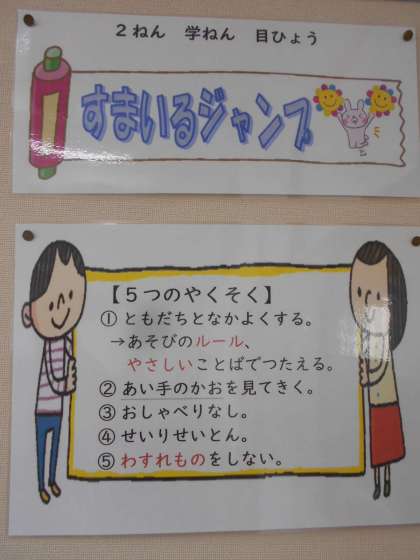 2ねん 学ねん 目ひょう
すまいるジャンプ
【5つのやくそく】
① ともだちとなかよくする。
→あそびのルール、
やさしいことばでつたえる。
② あい手のかおを見てきく。
③ おしゃべりなし。
④ せいりせいとん。
⑤ わすれものをしない。